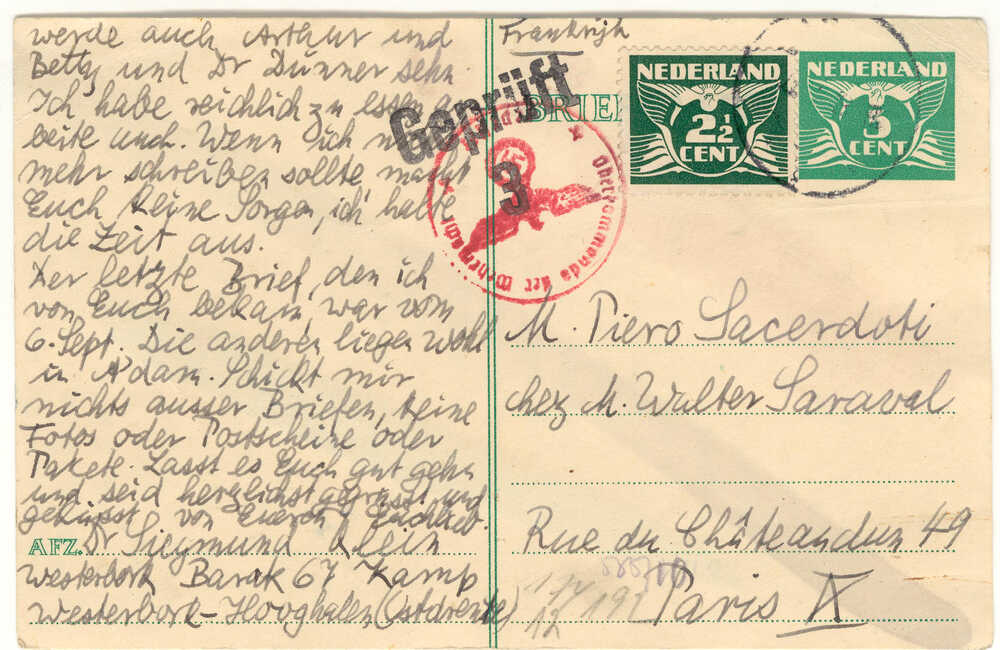 werde auch Arthur und
Betty und Dr Dünner sehn.
Ich habe reichlich zu essen
beite auch. Wenn ich
mehr schreiben sollte, macht
Euch keine Sorgen, ich halte
die Zeit aus.
Der letzte Brief, den ich
von Euch bekam, war vom
6. Sept. Die anderen liegen wohl
in A'dam. Schickt mir
nichts ausser Briefen, keine
Fotos oder Postscheine oder
Pakete. Lasst es Euch gut gehn
und seid herzlichst gegrüsst und
geküsst von Euerem
AFZ. Dr Siegmund Klein
Westerbork Barak 67 Kamp
Westerbork-Hooghalen (Ostdrente)
Frankrijk
BRIE
Geprüft
3
Oberkommando der Wehrmacht
NEDERLAND
2½
CENT
NEDERLAND
5
CENT
M. Piero Sacerdoti
chez M. Walter Saraval
Rue du Châteaudun 49
Paris IX
192
12